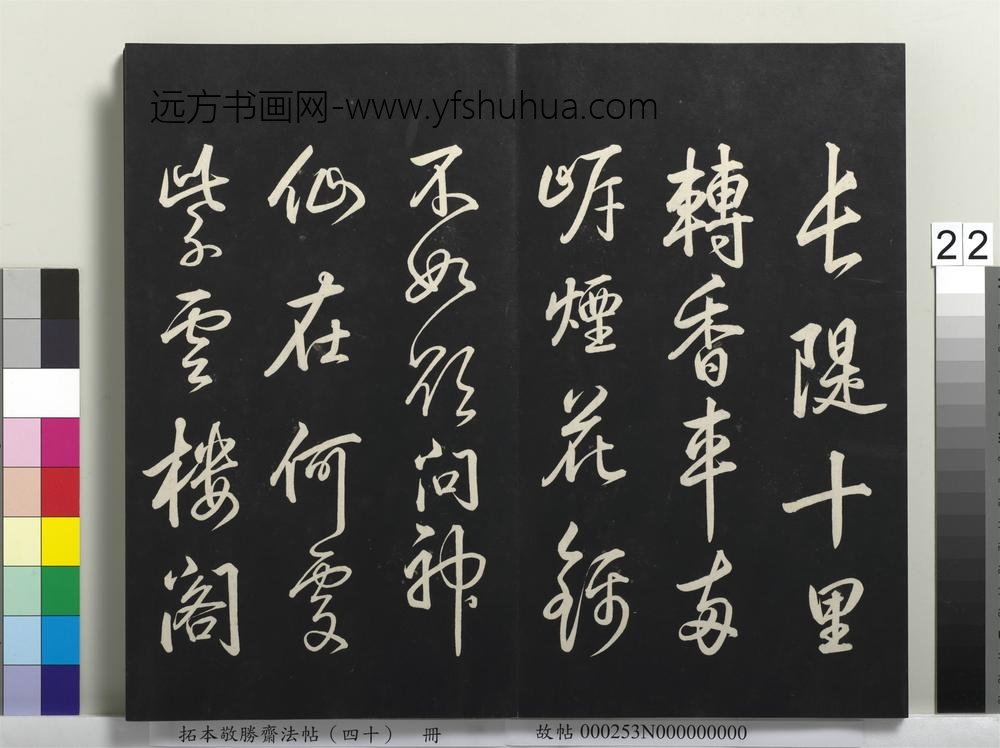 远方书画网-www.yfshuhua.com
長隄十里
轉香車兩
岸煙花錦
不如欲問神
仙在何處
紫雲樓閣
22
拓本敬勝齋法帖（四十） 冊
故帖 000253N000000000